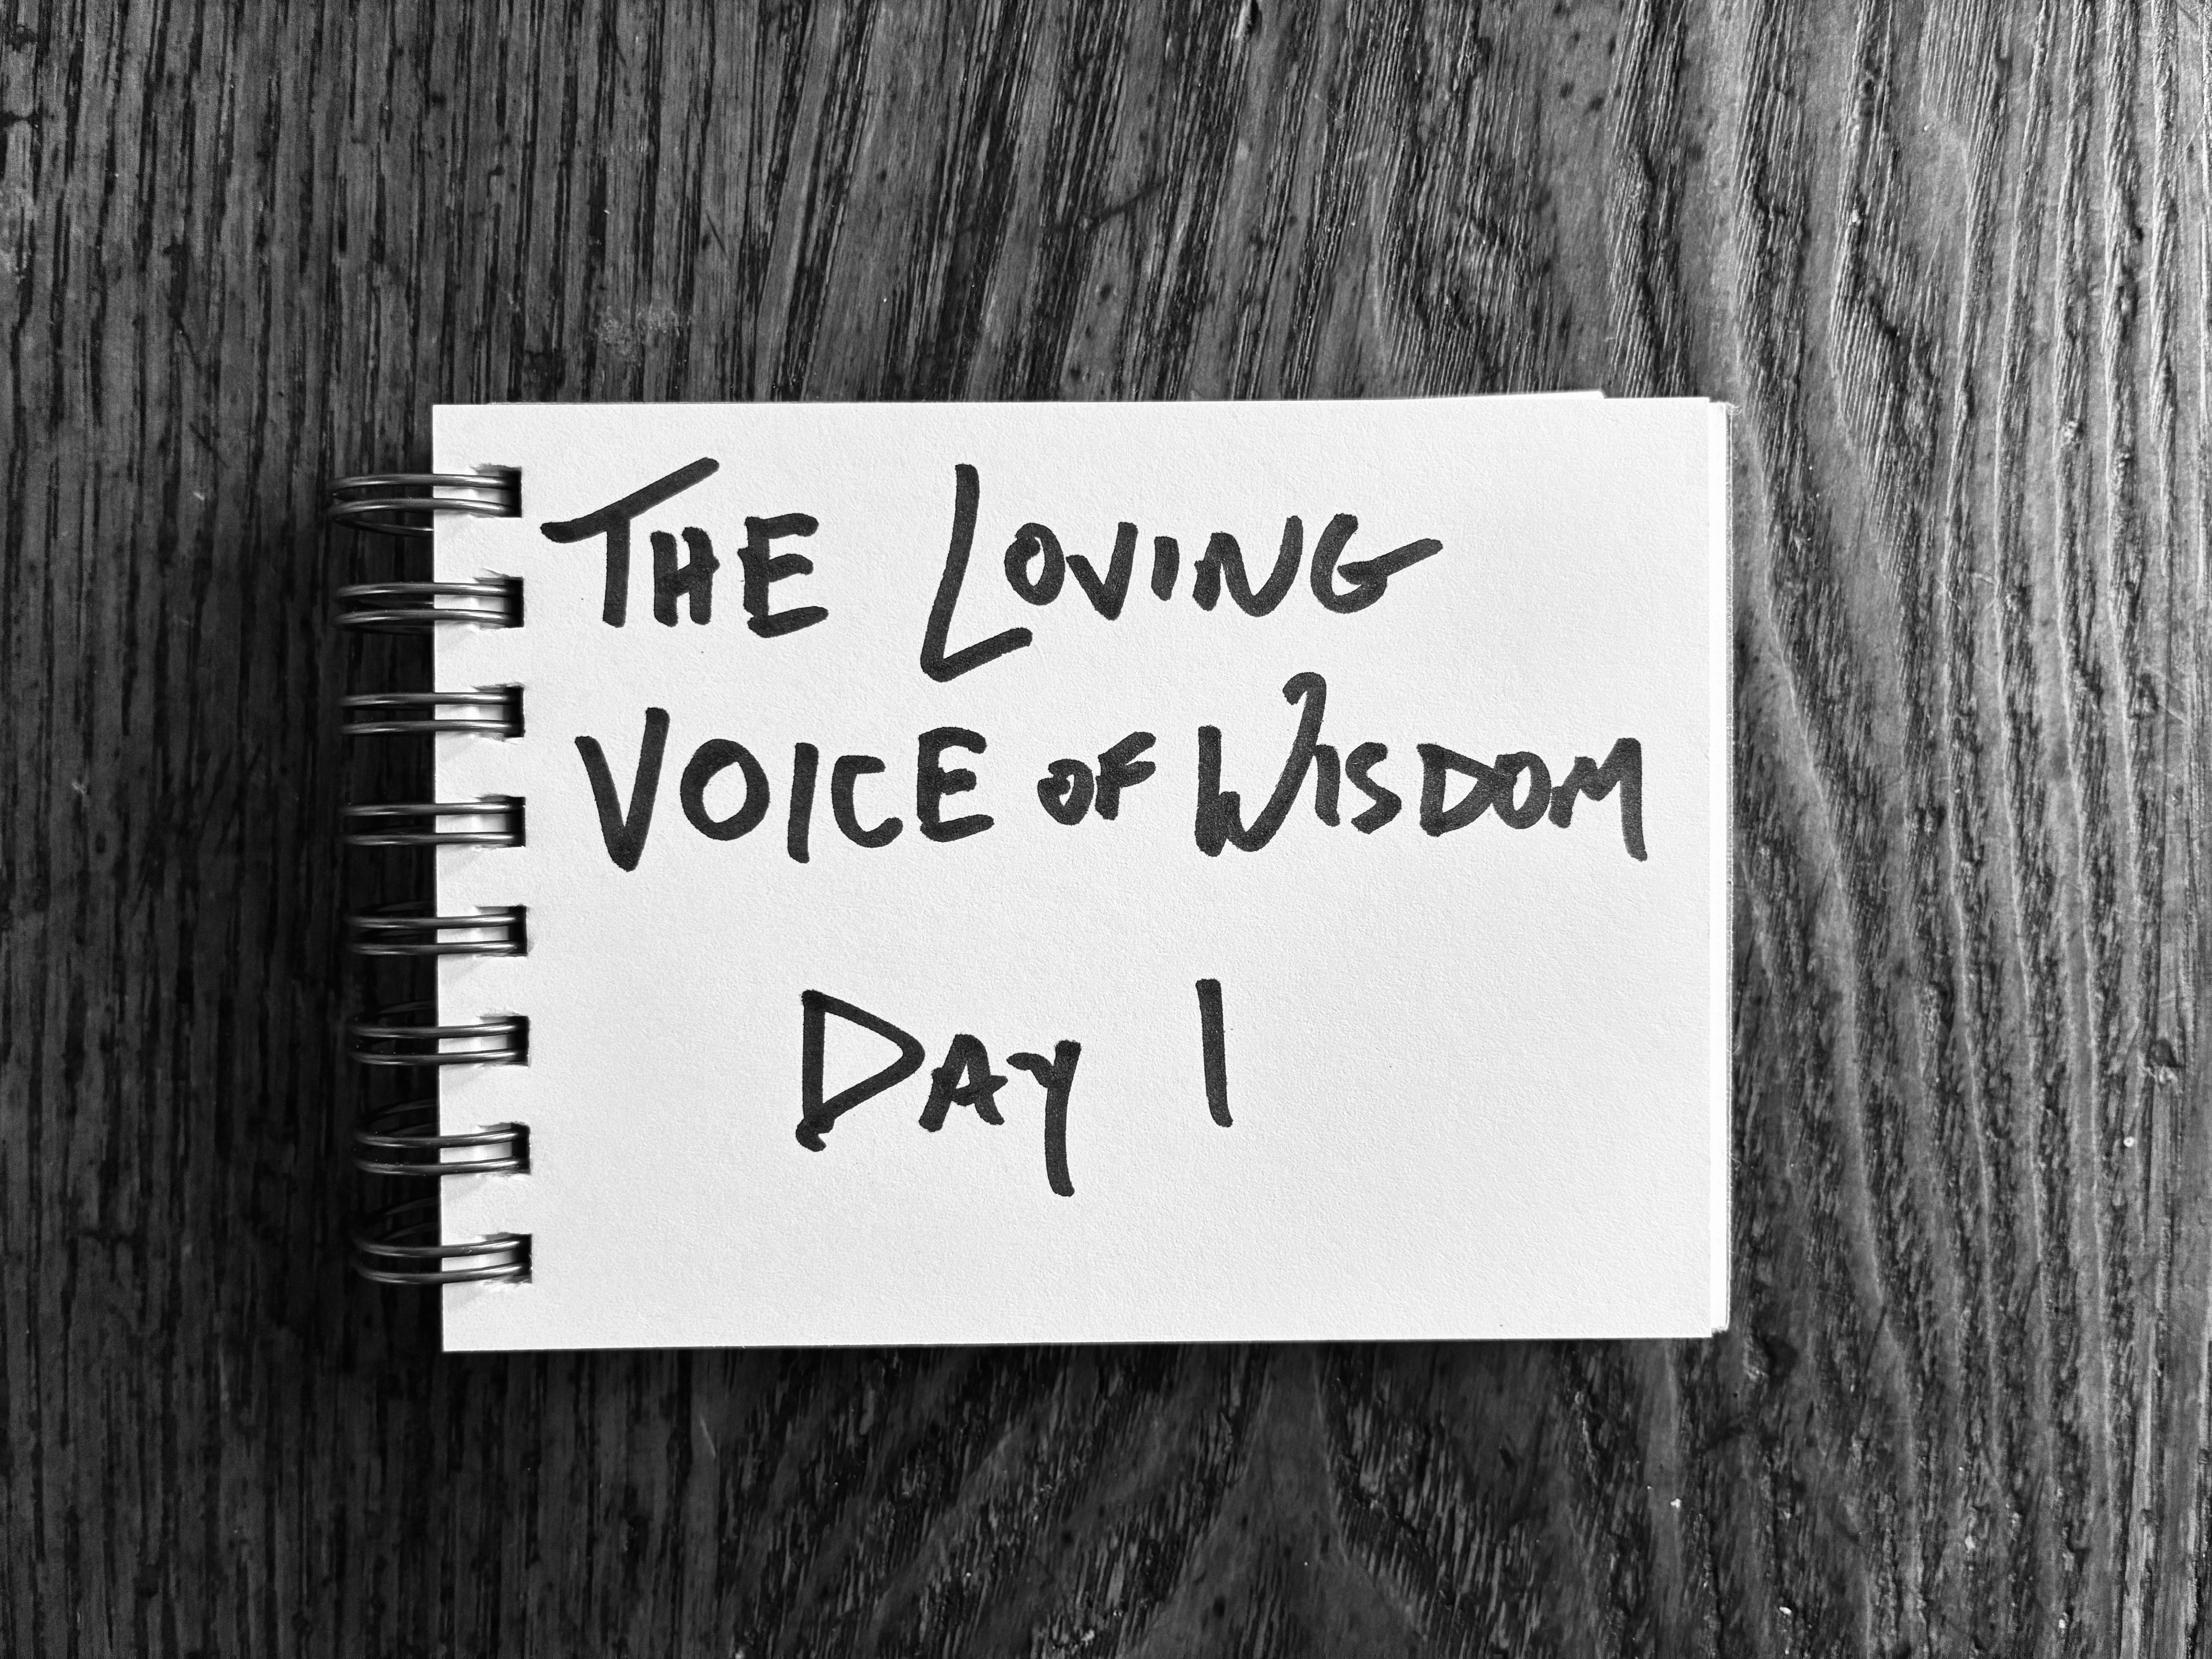 THE LOVING
VOICE OF WISDOM
DAY 1